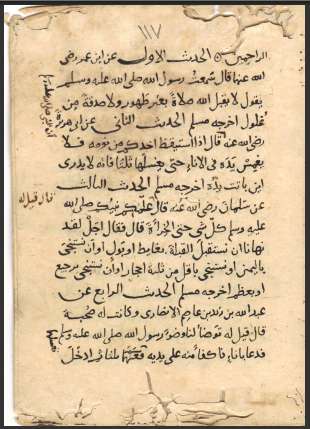 ١١٧
الراحمين الحديث الاول عن ابن عمر رضي
الله عنها قال سمعت رسول الله صلى الله عليه وسلم
يقول لا يقبل الله صلاة بغير طهور ولا صدقة من
غلول اخرجه مسلم الحديث الثاني عن ابي هريرة
رضي الله عنه قال اذا استيقظ احدكم من نومه فلا
يغمس يده في الاناء حتى يغسلها ثلثا فانه لا يدري
اين باتت يده اخرجه مسلم الحديث الثالث
عن سلمان رضي الله عنه قال علمكم نبيكم صلى الله
قال قيل له
عليه وسلم كل شي حتى الخرأة قال فقال اجل لقد
نهانا ان نستقبل القبلة بغايط او بول او ان نستنجي
باليمين او نستنجي باقل من ثلثة احجار او ان نستنجي برجيع
او بعظم اخرجه مسلم الحديث الرابع عن
عبد الله بن زيد بن عاصم الانصاري وكانت له صحبة
قال قيل له توضأ لنا وضوء رسول الله صلى الله عليه وسلم
فدعا باناء فاكفأ منه على يديه فغسلهما ثلثا ثم ادخل